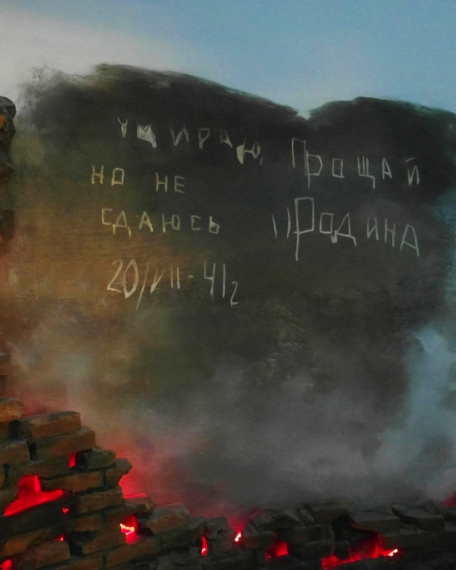 умираю,
но не
сдаюсь
20/VII-41г
Прощай
Родина